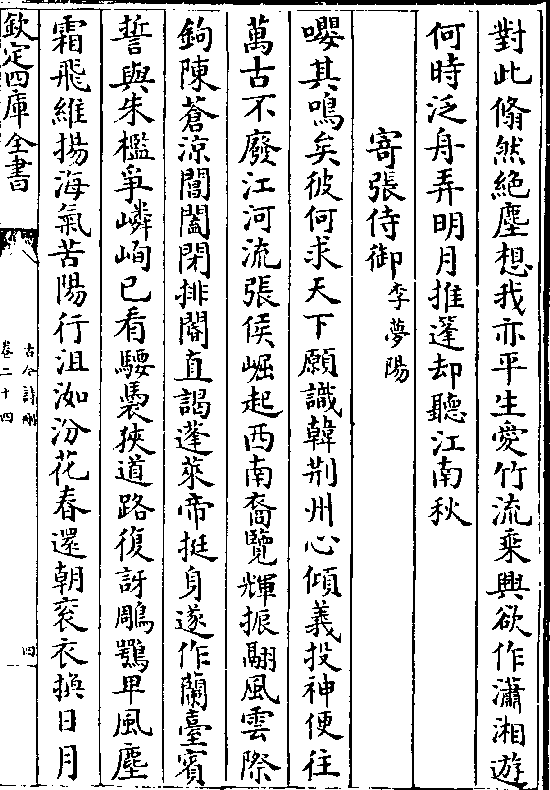 對此翛然絶塵想我亦平生愛竹流乘興欲作瀟湘遊
何時泛舟弄明月推篷却聽江南秋
寄張侍御李夢陽
嚶其鳴矣彼何求天下願識韓荆州心傾義投神便往
萬古不廢江河流張侯崛起西南裔覽輝振翮風雲際
鉤陳蒼涼閶闔閉排閣直謁蓬萊帝挺身遂作蘭臺賓
誓與朱檻爭嶙峋已看騕褭狹道路復訝鵰鶚卑風塵
霜飛維揚海氣苦陽行沮洳汾花春還朝衮衣換日月
欽定四庫全書
卷二十四
四